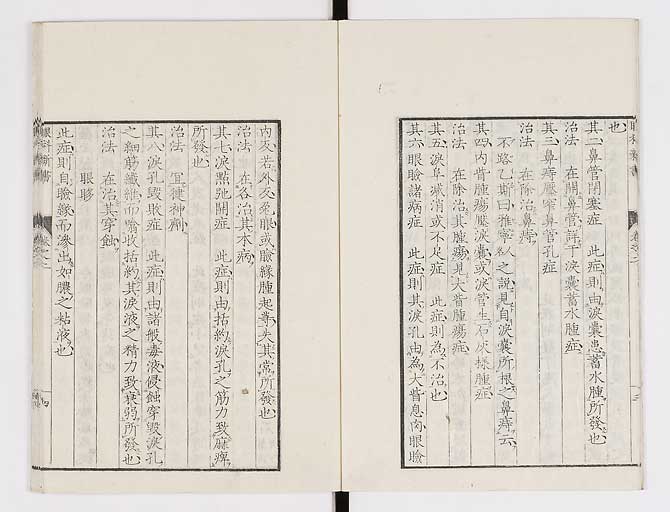 也
其二鼻管閉塞症　此症則由淚囊患蓄水腫所發也
治法　在開鼻管詳于淚囊蓄水腫症
其三鼻痔壓窄鼻管孔症
治法　在除治鼻痔
不路乙斯曰雅寧以之說見自淚囊所根之鼻痔云
其四內眥腫瘍壓淚囊或淚管生石灰樣腫症
治法　在除治其腫瘍見大眥腫瘍症
其五淚阜減消或不足症　此症則為不治也
其六眼瞼諸病症　此症則其淚孔由為大眥息肉眼瞼
內反若外反兔眼或瞼緣腫起等失其常所發也
治法　在各治其本病
其七淚點弛開症　此症則由括約淚孔之筋力致麻痺
所發也
治法　宜衝神劑
其八淚孔毀敗症　此症則由諸般毒液侵蝕穿毀淚孔
之細筋纖維而噏收括約其淚液之精力致衰弱所發也
治法　在治其穿蝕
眼眵
此症則自瞼緣而滲出如膿之粘液也
眼科新書
卷之二
四
三